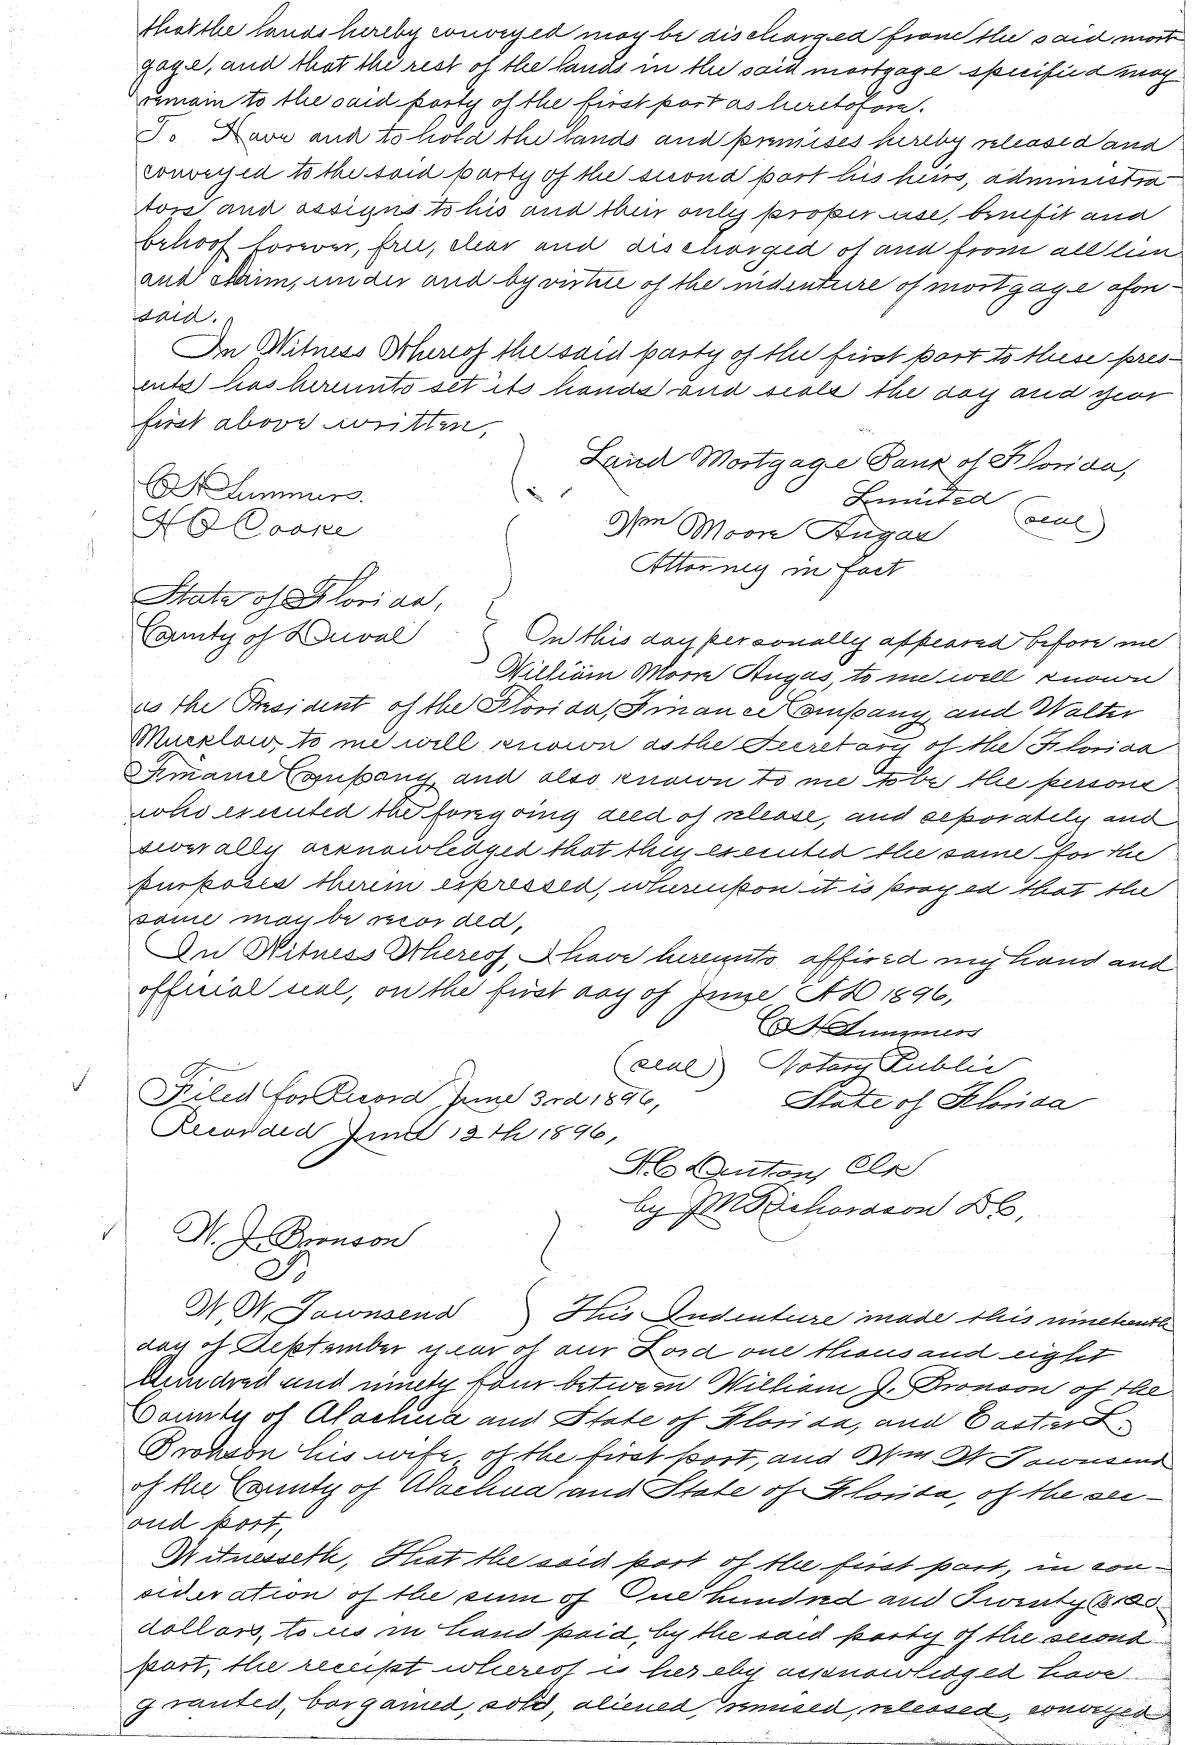 that the lands hereby conveyed may be discharged from the said mort-
gage, and that the rest of the lands in the said mortgage specified may
remain to the said party of the first part as heretofore.
To Have and to hold the lands and premises hereby released and
conveyed to the said party of the second part his heirs, administra-
tors and assigns to his and their only proper use, benefit and
behoof forever, free, clear and discharged of and from all lien
and claim, under and by virtue of the indenture of mortgage afore-
said.
In Witness Whereof the said party of the first part to these pres-
ents has hereunto set its hands and seals the day and year
first above written,
Land Mortgage Bank of Florida,
C H Summers. Limited
H G Cooke Wm Moore Angas (seal)
Attorney in fact
State of Florida,
County of Duval On this day personally appeared before me
William Moore Angas, to me well known
as the President of the Florida, Finance Company, and Walter
Mucklow, to me well known as the Secretary of the Florida
Finance Company, and also known to me to be the persons
who executed the foregoing deed of release, and separately and
severally acknowledged that they executed the same for the
purposes therein expressed, whereupon it is prayed that the
same may be recorded,
In Witness Whereof, I have hereunto affixed my hand and
official seal, on the first day of June, A D 1896,
C H Summers
(seal) Notary Public
Filed for Record June 3rd 1896, State of Florida
Recorded June 12th 1896,
H C Denton, Clk
by J M Richardson D.C,
W. J. Bronson
To
W. W. Townsend This Indenture made this nineteenth
day of September year of our Lord one thousand eight
hundred and ninety four between William J. Bronson of the
County of Alachua and State of Florida, and Easter L.
Bronson his wife, of the first part, and Wm W Townsend
of the County of Alachua and State of Florida, of the sec-
ond part,
Witnesseth, That the said part of the first part, in con-
sideration of the sum of One hundred and Twenty ($120
dollars, to us in hand paid, by the said party of the second
part, the receipt whereof is hereby acknowledged have
granted, bargained, sold, aliened, remised, released, conveyed